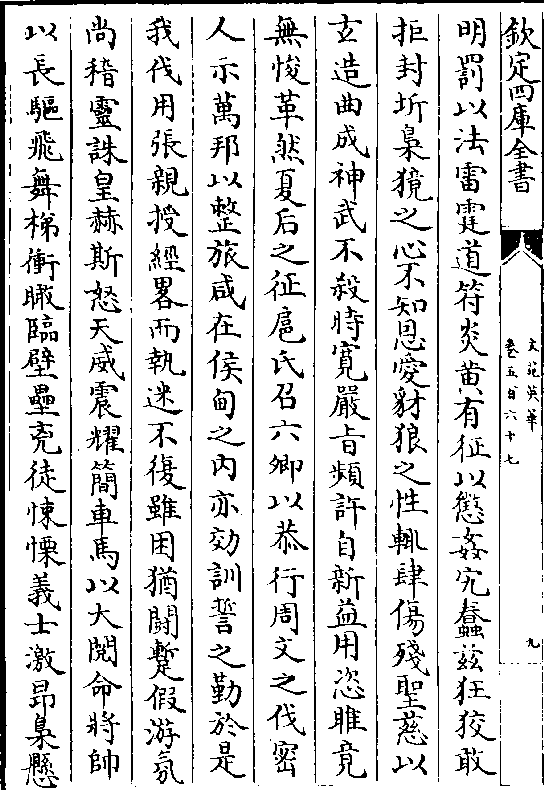 欽定四庫全書
文苑英華
卷五百六十七
九
明罰以法雷霆道符炎黄有征以懲姦宄蠢兹狂狡敢
拒封圻梟獍之心不知恩愛豺狼之性輙肆傷殘聖慈以
玄造曲成神武不殺時寛嚴㫖頻許自新益用恣睢竟
無悛革然夏后之征扈氏召六卿以恭行周文之伐密
人示萬邦以整旅咸在侯甸之内亦効訓誓之勤於是
我伐用張親授經畧而執迷不復雖困猶鬬蹔假游氛
尚稽靈誅皇赫斯怒天威震耀簡車馬以大閲命將帥
以長驅飛舞梯衝瞰臨壁壘兖徒悚慄義士激昂梟懸